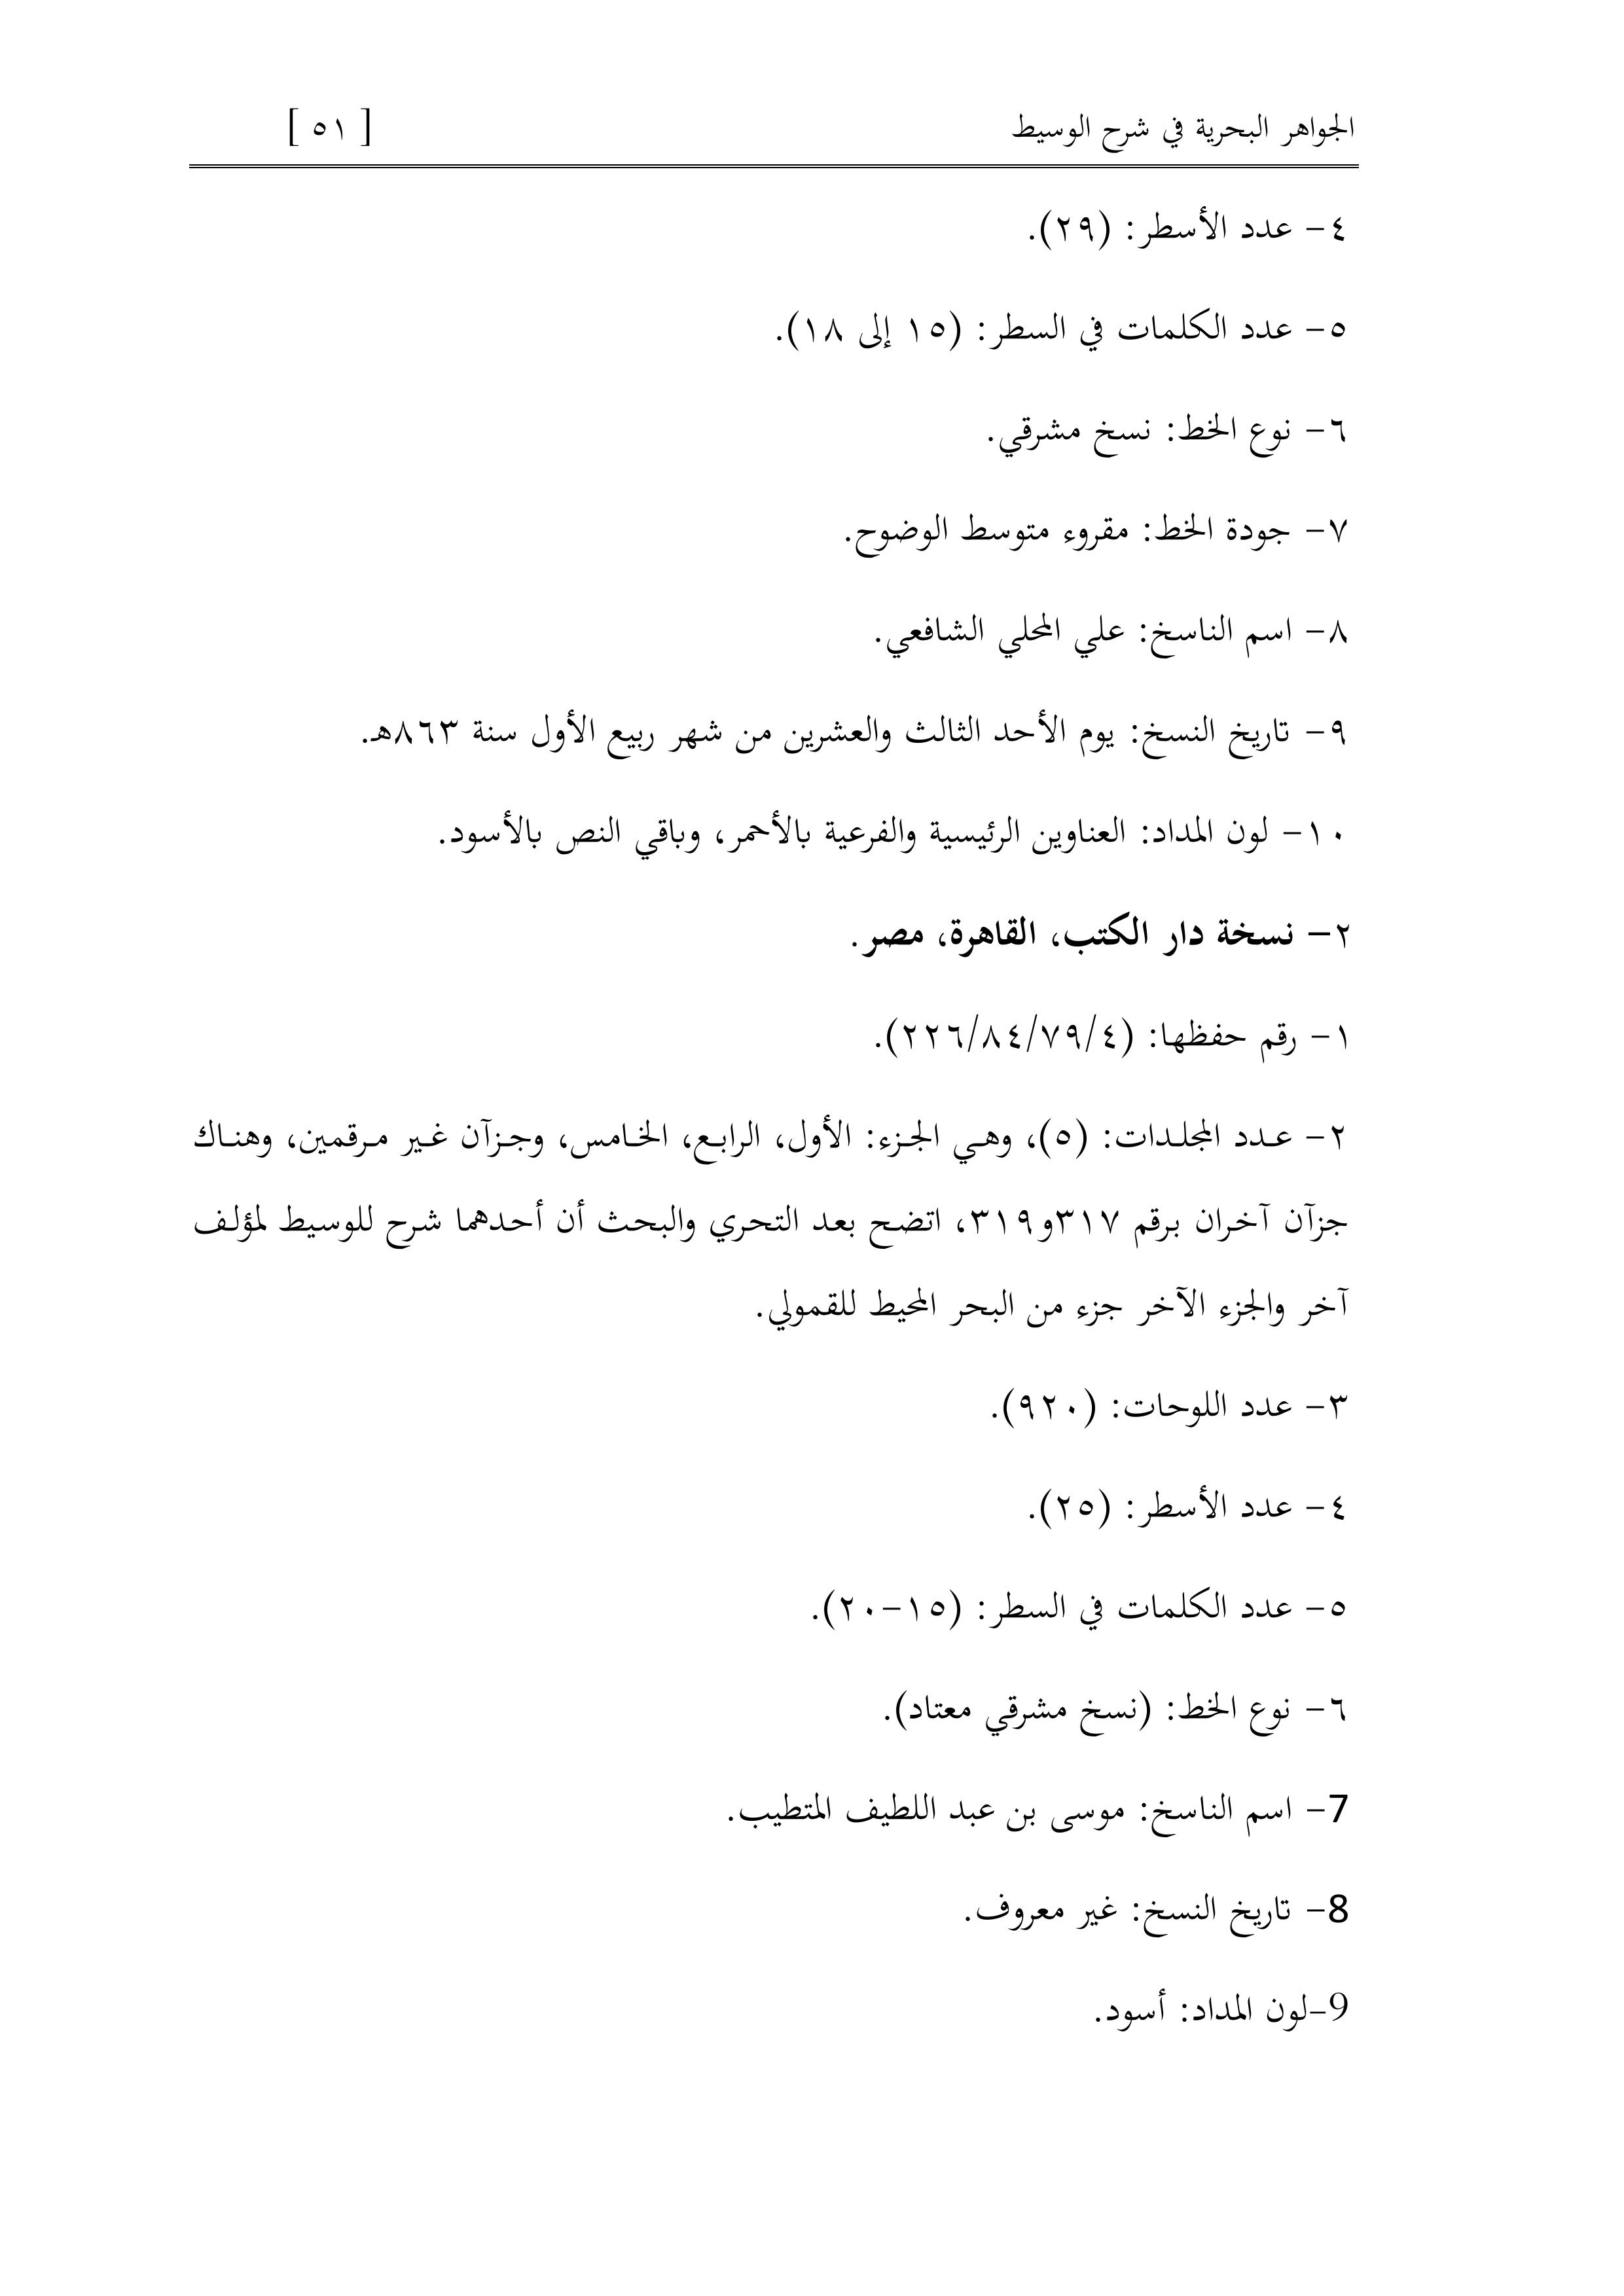 الجواهر البحرية في شرح الوسيط [ ٥١ ]
٤- عدد الأسطر: (٢٩).
٥- عدد الكلمات في السطر: (١٥ إلى ١٨).
٦- نوع الخط: نسخ مشرقي.
٧- جودة الخط: مقروء متوسط الوضوح.
٨- اسم الناسخ: علي المحلي الشافعي.
٩- تاريخ النسخ: يوم الأحد الثالث والعشرين من شهر ربيع الأول سنة ٨٦٣هـ.
١٠- لون المداد: العناوين الرئيسية والفرعية بالأحمر، وباقي النص بالأسود.
٢- نسخة دار الكتب، القاهرة، مصر.
١- رقم حفظها: (٢٢٦/٨٤/٧٩/٤).
٢- عـدد المجلـدات: (٥)، وهـي الجـزء: الأول، الرابـع، الخـامس، وجـزآن غـير مـرقمين، وهنـاك
جزآن آخران برقم ٣١٧و٣١٩، اتضح بعد التحري والبحث أن أحدهما شرح للوسيط لمؤلف
آخر والجزء الآخر جزء من البحر المحيط للقمولي.
٣- عدد اللوحات: (٩٢٠).
٤- عدد الأسطر: (٢٥).
٥- عدد الكلمات في السطر: (١٥-٢٠).
٦- نوع الخط: (نسخ مشرقي معتاد).
7- اسم الناسخ: موسى بن عبد اللطيف المتطيب.
8- تاريخ النسخ: غير معروف.
9-لون المداد: أسود.